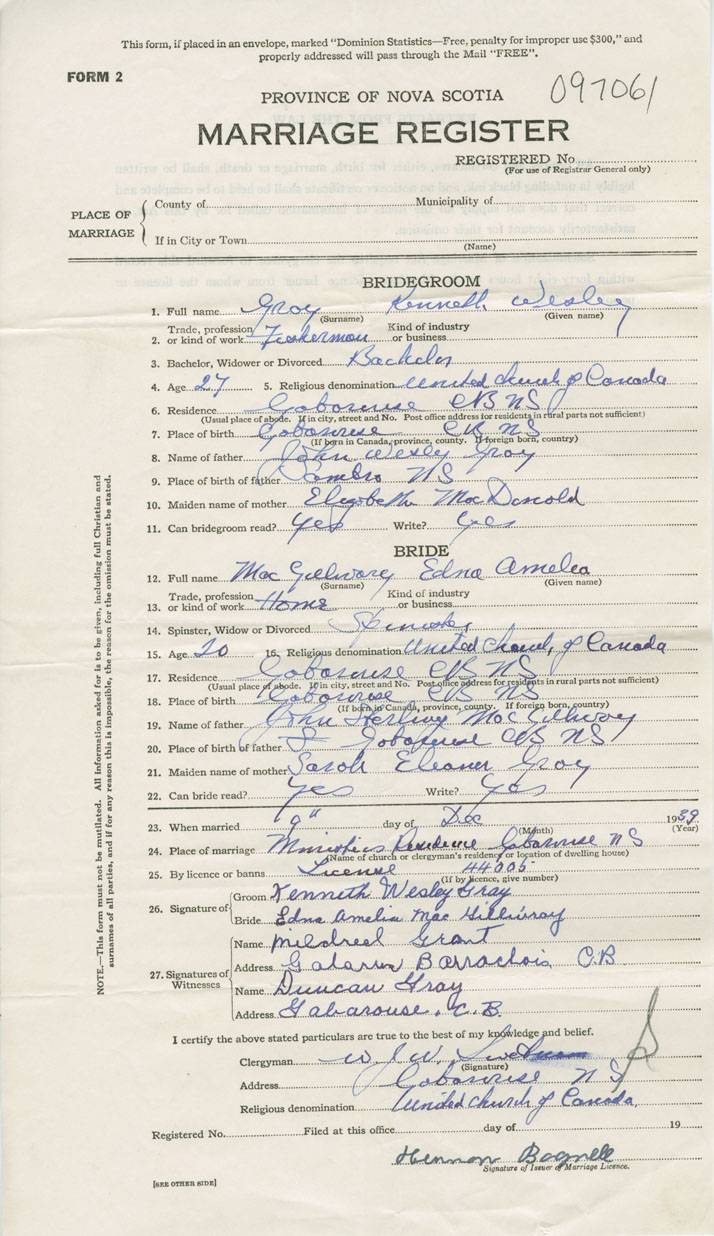 This form, if placed in an envelope, marked "Dominion Statistics—Free, penalty for improper use $300," and
properly addressed will pass through the Mail "FREE".
FORM 2
097061
PROVINCE OF NOVA SCOTIA
MARRIAGE REGISTER
REGISTERED No.
(For use of Registrar General only)
PLACE OF MARRIAGE
County of Municipality of
If in City or Town
(Name)
BRIDEGROOM
1. Full name Gray Kenneth Wesley
(Surname) (Given name)
2. Trade, profession or kind of work Fisherman Kind of industry or business
3. Bachelor, Widower or Divorced Bachelor
4. Age 27 5. Religious denomination United Church of Canada
6. Residence Gabarouse CB NS
(Usual place of abode. If in city, street and No. Post office address for residents in rural parts not sufficient)
7. Place of birth Gabarouse CB NS
(If born in Canada, province, county. If foreign born, country)
8. Name of father John Wesley Gray
9. Place of birth of father Sambro NS
10. Maiden name of mother Elizabeth MacDonald
11. Can bridegroom read? Yes Write? Yes
BRIDE
12. Full name MacGillivary Edna Amelia
(Surname) (Given name)
13. Trade, profession or kind of work Home Kind of industry or business
14. Spinster, Widow or Divorced Spinster
15. Age 20 16. Religious denomination United Church of Canada
17. Residence Gabarouse CB NS
(Usual place of abode. If in city, street and No. Post office address for residents in rural parts not sufficient)
18. Place of birth Gabarouse CB NS
(If born in Canada, province, county. If foreign born, country)
19. Name of father John Sterling MacGillivray
20. Place of birth of father Gabarouse CB NS
21. Maiden name of mother Sarah Eleanor Gray
22. Can bride read? Yes Write? Yes
23. When married 9" day of Dec 1939
(Month) (Year)
24. Place of marriage Minister's Residence Gabarouse NS
(Name of church or clergyman's residence, or location of dwelling house)
25. By licence or banns License 44005
(If by licence, give number)
26. Signature of
Groom Kenneth Wesley Gray
Bride Edna Amelia MacGillivray
27. Signatures of Witnesses
Name Mildred Grant
Address Gabarus Barrachois C.B
Name Duncan Gray
Address Gabarouse, C.B.
I certify the above stated particulars are true to the best of my knowledge and belief.
Clergyman W. J. W.
(Signature)
Address Gabarouse NS
Religious denomination United Church of Canada
Registered No. Filed at this office day of 19
Hermon Bagnell
Signature of Issuer of Marriage Licence.
[SEE OTHER SIDE]
NOTE.—This form must not be mutilated. All information asked for is to be given, including full Christian and
surnames of all parties, and if for any reason this is impossible, the reason for the omission must be stated.